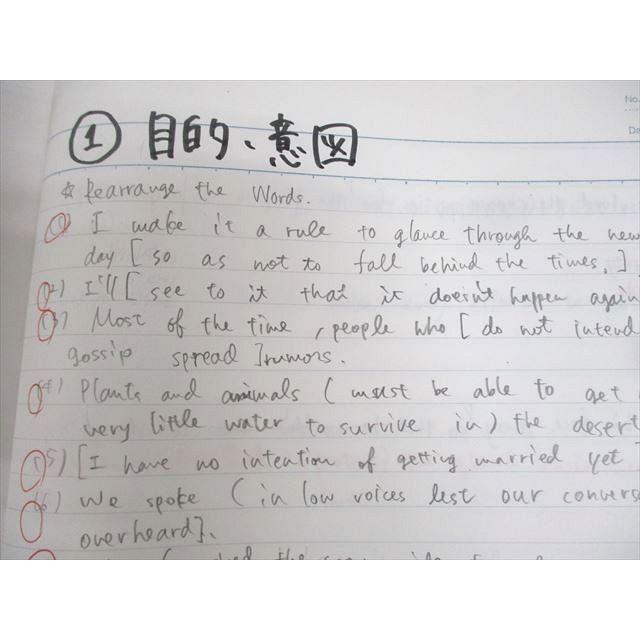 No.
① 目的、意図
☆ Rearrange the Words.
(1) I make it a rule to glance through the new
day [ so as not to fall behind the times. ]
(2) I'll [ see to it that it doesn't happen again
(3) Most of the time, people who [ do not intend
gossip spread ] rumors.
(4) Plants and animals ( must be able to get
very little water to survive in ) the desert
(5) [ I have no intention of getting married yet ]
(6) We spoke ( in low voices lest our convers
overheard ].